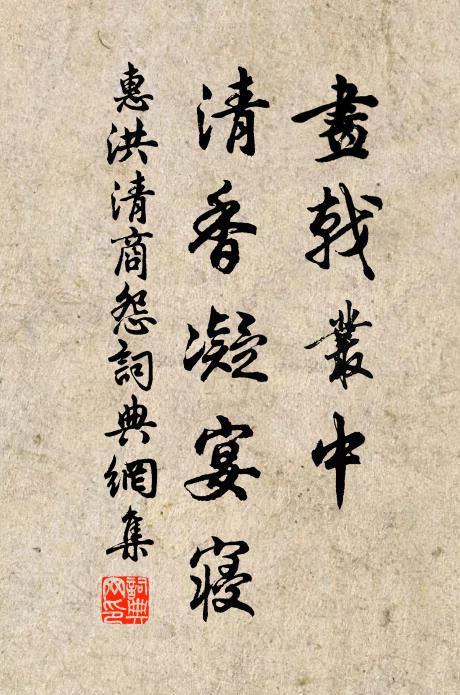 畫戟叢中
清香凝宴寢
惠洪清商怨詞典網集
詞典